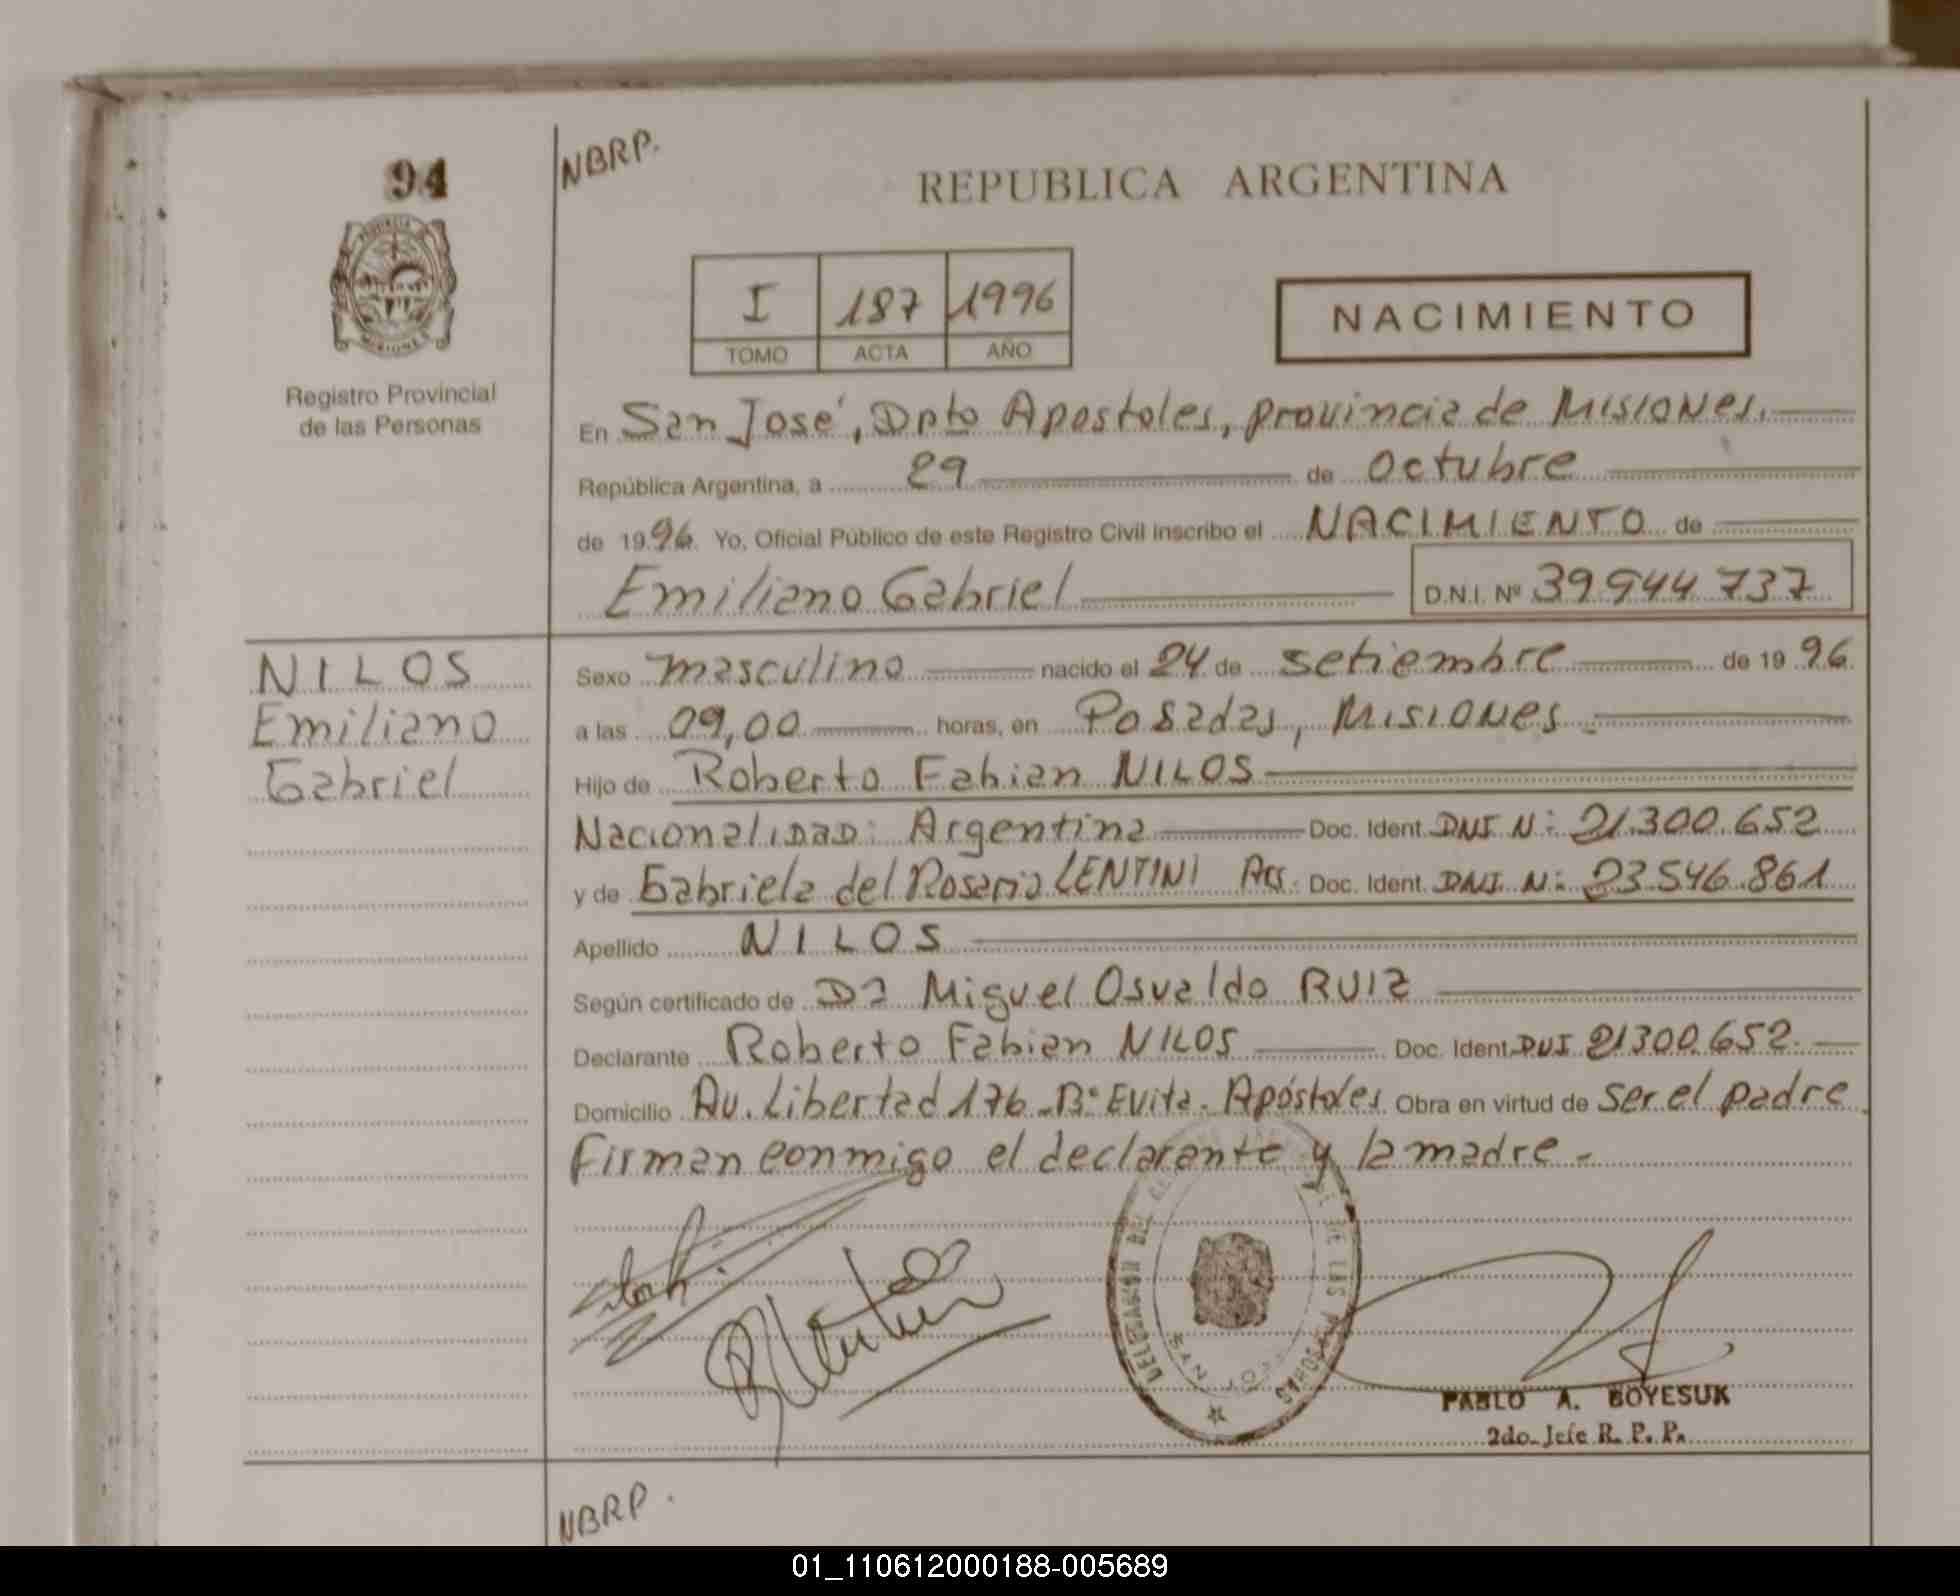 94
NBRP.
REPUBLICA ARGENTINA
PROVINCIA
MISIONES
Registro Provincial
de las Personas
I 187 1996
TOMO ACTA AÑO
NACIMIENTO
En San José, Dpto Apostoles, provincia de Misiones.
República Argentina, a 29 de Octubre
de 1996. Yo, Oficial Público de este Registro Civil inscribo el NACIMIENTO de
Emiliano Gabriel D.N.I. Nº 39944737
NILOS
Emiliano
Gabriel
Sexo masculino nacido el 24 de setiembre de 1996.
a las 09,00 horas, en Posadas, Misiones.
Hijo de Roberto Fabian NILOS
Nacionalidad: Argentina Doc. Ident. DNI N: 21.300.652
y de Gabriela del Rosario LENTINI Arg. Doc. Ident. DNI N: 23.546.861
Apellido NILOS
Según certificado de Miguel Osvaldo RUIZ
Declarante Roberto Fabian NILOS Doc. Ident. DNI 21300.652.
Domicilio Av. Libertad 176 - Bº Evita - Apóstoles Obra en virtud de ser el padre.
Firman conmigo el declarante y la madre -
DELEGACIÓN DEL DE LAS PERSONAS
SAN
PABLO A. BOYESUK
2do. Jefe R. P. P.
NBRP.
01_110612000188-005689